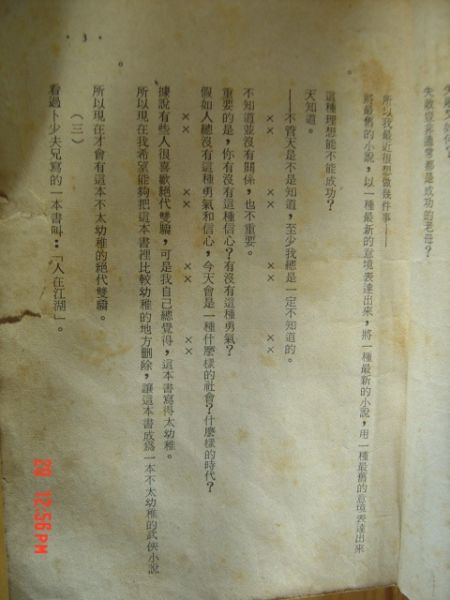 失敗豈非通常都是成功的老母？
所以我最近很想做幾件事——
將最舊的小說，以一種最新的意境表達出來，將一種最新的小說，用一種最舊的意境表達出來
這種理想能不能成功？
天知道。
——不管天是不是知道，至少我總是一定不知道的。
×× ×× ×× ××
不知道並沒有關係，也不重要。
重要的是，你有沒有這種信心？有沒有這種勇氣？
假如人總沒有這種勇氣和信心，今天會是一種什麼樣的社會？什麼樣的時代？
×× ×× ×× ××
據說有些人很喜歡絕代雙驕，可是我自己總覺得，這本書寫得太幼稚。
所以現在我希望能夠把這本書裡比較幼稚的地方刪除，讓這本書成爲一本不太幼稚的武俠小說
所以現在才會有這本不太幼稚的絕代雙驕。
（三）
看過卜少夫兄寫的一本書叫：「人在江湖」。
· 3 ·
29 12:56 PM